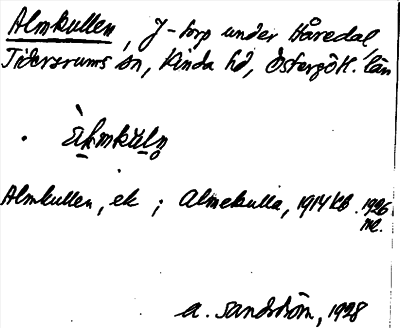 Almkullen, J-torp under Håredal
Tidersrums sn, Kinda hd, Östergötl. län
Almkullen, ek ; Almekulla, 1914 KB. 1926
A. Sandström, 1928